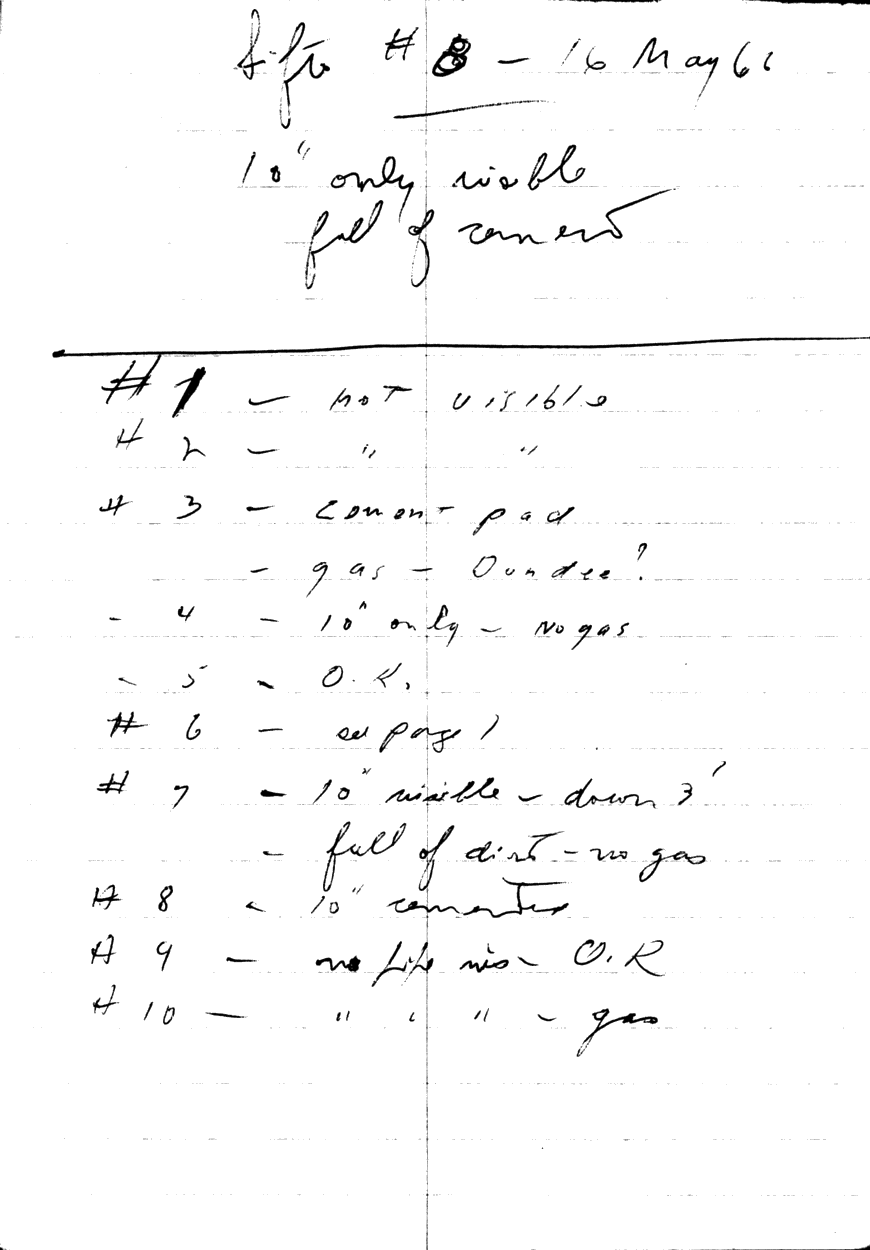 Sifto # 8 - 16 May 61
10" only visible
full of cement
#1 - not visible
#2 - " "
#3 - Cement pad
- gas - Dundee?
- 4 - 10" only - No gas
- 5 - O.K.
#6 - see page 1
#7 - 10" visible - down 3'
- full of dirt - no gas
#8 - 10" cemented
#9 - no pipe vis - O.K
#10 - " " " - gas